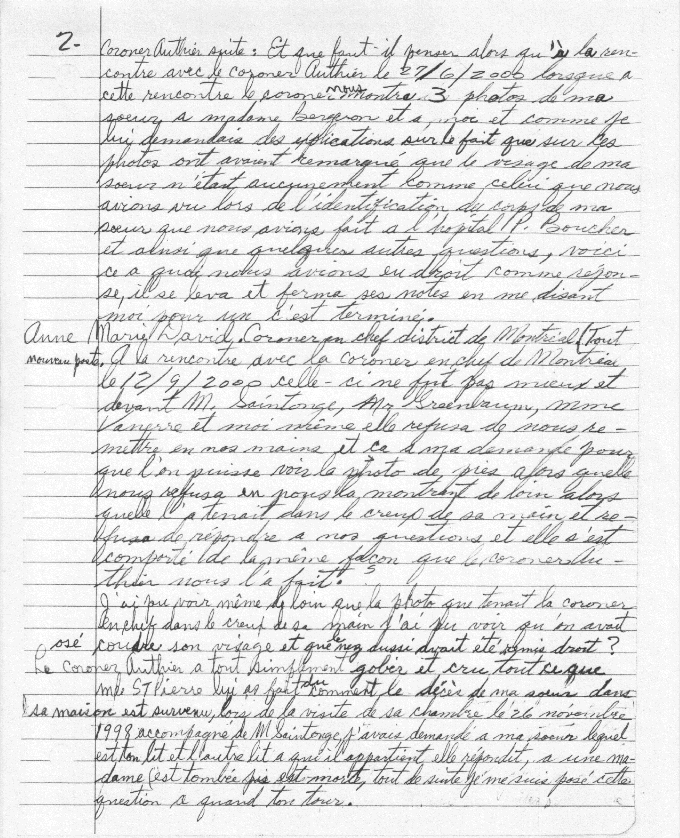 2-
Coroner Authier suite: Et que faut-il penser alors qu'à la ren-
contre avec le coroner Authier le 27/6/2000 lorsque a
cette rencontre le coroner nous montra 3 photos de ma
soeur a madame Bergeron et a, moi et comme je
lui demandais des explications sur le fait que sur ces
photos ont avaient remarqué que le visage de ma
soeur n'étant aucunement comme celui que nous
avions vu lors de l'identification du corp de ma
soeur que nous avions fait a l'hopital P. Boucher
et ainsi que quelques autres questions, voici
ce a quoi nous avions eu droit comme répon-
se, il se leva et ferma ses notes en me disant
moi pour un c'est terminé.
Anne Marie David. Coroner en chef district de Montréal. (Tout
nouveau poste. A la rencontre avec la coroner en chef de Montréal
le 12/9/2000 celle-ci ne fut pas mieux et
devant M. Saintonge, Mr Greenbaum, mme
et moi même elle refusa de nous re-
mettre en nos mains et ça a ma demande pour
que l'on puisse voir la photo de près alors quelle
nous refusa en nous la montrant de loin alors
quelle l'a tenait dans le creux de sa main et re-
fusa de répondre a nos questions et elle s'est
comporté de la même façon que le coroner Au-
thier nous l'a fait.
J'ai pu voir même de loin que la photo que tenait la coroner
en chef dans le creux de sa main j'ai pu voir qu'on avait
osé coudre son visage et que le nez aussi avait été remis droit?
Le coroner Authier a tout simplement gober et cru tout ce que
mme St Pierre lui as fait du comment le décès de ma soeur dans
sa maison est survenu, lors de la visite de sa chambre le 26 novembre
1998 accompagné de M. Saintonge, j'avais demandé a ma soeur lequel
est ton lit et l'autre lit a qui il appartient, elle répondit, a une ma-
dame (est tombée pis est morte, tout de suite je me suis posé cette
question a quand ton tour.